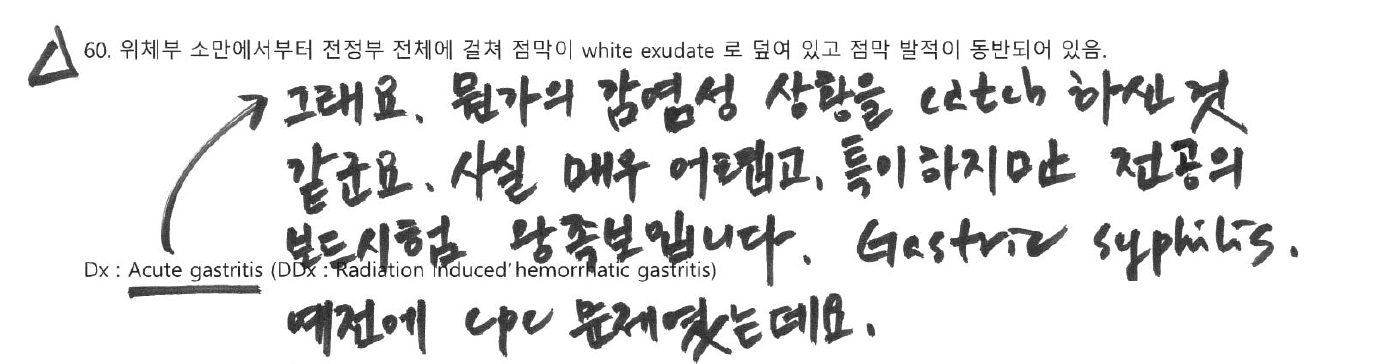 60. 위체부 소만에서부터 전정부 전체에 걸쳐 점막이 white exudate 로 덮여 있고 점막 발적이 동반되어 있음.
그래요. 뭔가의 감염성 상황을 catch 하신 것
같군요. 사실 매우 어렵고, 특이하지만 전공의
보드시험 왕족보입니다. Gastric syphilis.
Dx : Acute gastritis (DDx : Radiation induced hemorrhatic gastritis)
예전에 cpc 문제였는데요.